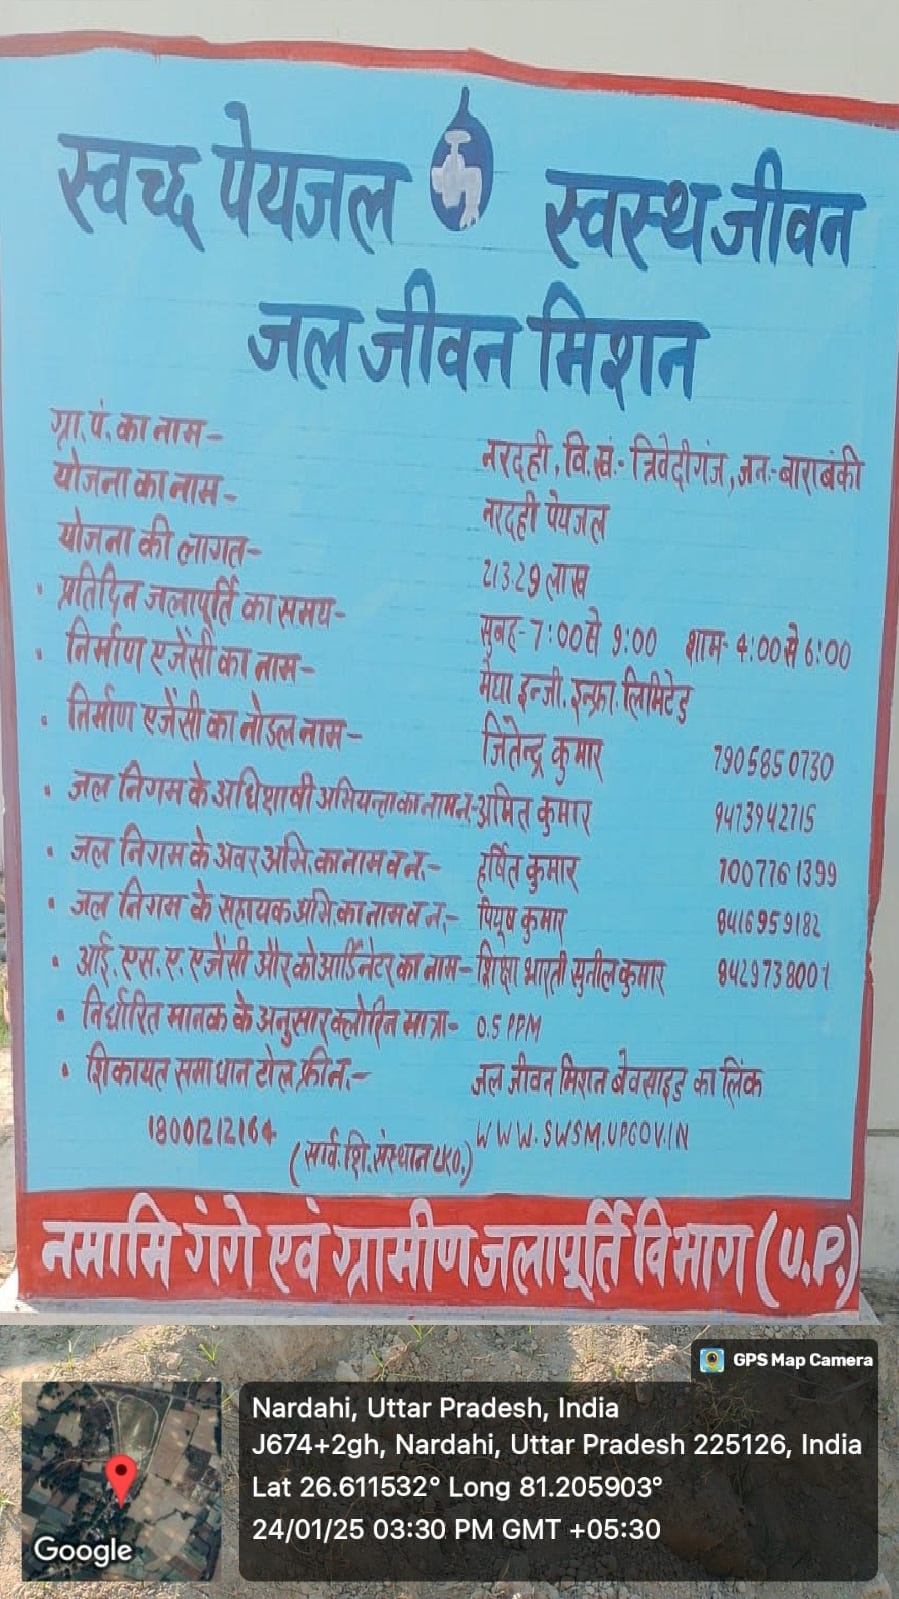 स्वच्छ पेयजल स्वस्थ जीवन
जल जीवन मिशन
ग्रा. पं. का नाम- नरदही, वि.खं.- त्रिवेदीगंज, जन.- बाराबंकी
योजना का नाम- नरदही पेयजल
योजना की लागत- 213.29 लाख
• प्रतिदिन जलापूर्ति का समय- सुबह- 7:00 से 9:00 शाम- 4:00 से 6:00
• निर्माण एजेंसी का नाम- मेघा इन्जी. इन्फ्रा. लिमिटेड
• निर्माण एजेंसी का नोडल नाम- जितेन्द्र कुमार 7905850730
• जल निगम के अधिशाषी अभियन्ता का नाम न.- अमित कुमार 9473942715
• जल निगम के अवर अभि. का नाम व न.- हर्षित कुमार 7007761399
• जल निगम के सहायक अभि. का नाम व न.- पियूष कुमार 8416959182
• आई. एस. ए. एजेंसी और कोआर्डिनेटर का नाम- शिक्षा भारती सुनील कुमार 8429738001
• निर्धारित मानक के अनुसार क्लोरिन मात्रा- 0.5 PPM
• शिकायत समाधान टोल फ्री न.- जल जीवन मिशन बेवसाइड का लिंक
18001212164 WWW.SWSM.UPGOV.IN
(सार्व. शि. संस्थान LKO.)
नमामि गंगे एवं ग्रामीण जलापूर्ति विभाग (U.P.)
GPS Map Camera
Nardahi, Uttar Pradesh, India
J674+2gh, Nardahi, Uttar Pradesh 225126, India
Lat 26.611532° Long 81.205903°
24/01/25 03:30 PM GMT +05:30
Google